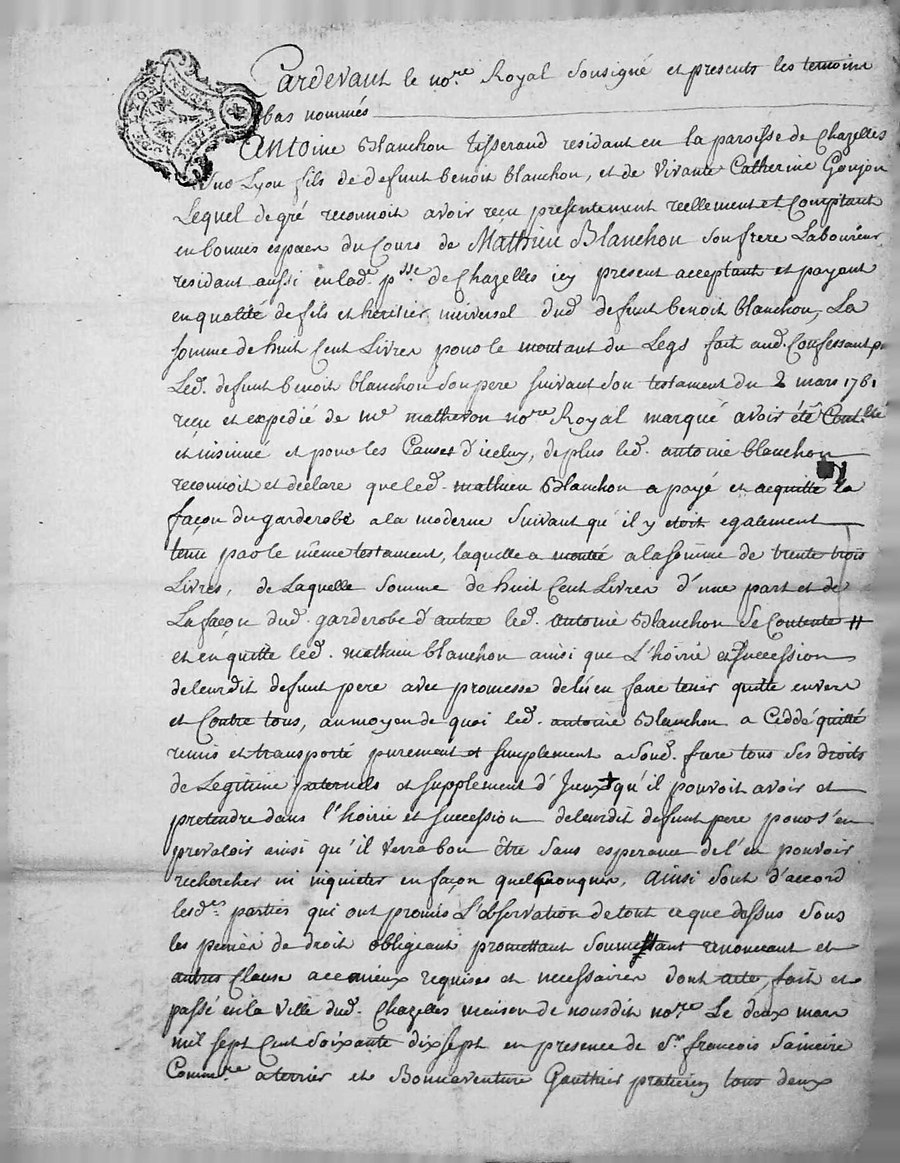 Pardevant le no.re Royal Sousigné et presents les temoins
bas nommés
Antoine Blanchon tisserand residant en la paroisse de Chazelles
Lyon fils de defunt benoit blanchon, et de Vivante Catherine Goujon
Lequel de gré reconnoit avoir reçu presentement reellement et Comptant
en bonnes espaces du Cours de Mathieu Blanchon son frere Laboureur
residant aussi en lad.e p.sse de Chazelles icy present acceptant et payant
en qualité de fils et heritier universel dud. defunt benoit blanchon, La
somme de huit Cent Livres pour le montant du Legs fait aud. Confessant
Led. defunt benoit blanchon son pere suivant son testament du 2 mars 1761
reçu et expedié de m.e matheron no.re Royal marqué avoir été Cont.llé
et insinué et pour les Causes d'iceluy, de plus led. antoine blanchon
reconnoit et declare que led. mathieu Blanchon a payé et acquitté la
façon du garderobe a la moderne suivant qu'il y etoit egalement
tenu par le même testament, laquelle a montée a la somme de trente trois
Livres, de Laquelle somme de huit Cent Livres d'une part et de
La façon dud. garderobe d'autre led. antoine Blanchon se Contente
et en quitte led. mathieu blanchon ainsi que L'hoirie et succession
de leurdit defunt pere avec promesse de l'en faire tenir quitte envers
et Contre tous, au moyen de quoi led. antoine Blanchon a Ceddé quitté
remis et transporté purement et simplement a sond. frere tous ses droits
de Legitime paternels et supplement d'Iceux + qu'il pouvoit avoir et
pretendre dans l'hoirie et succession de leurdit defunt pere pour s'en
prevaloir ainsi qu'il verra bon être sans esperance de l'en pouvoir
rechercher ni inquieter en façon quelquonques, ainsi sont d'accord
lesd.es parties qui ont promis L'observation de tout ce que dessus sous
les peines de droit obligeant promettant soumettant renoncant et
autres Clause requises et necessaires dont acte, fait et
passé en la Ville dud. Chazelles maison de nousdit no.re Le deux mars
mil sept Cent soixante dix sept en presence de S.r francois
Comm.re a terrier et Bonnaventure Gauthier praticien tous deux